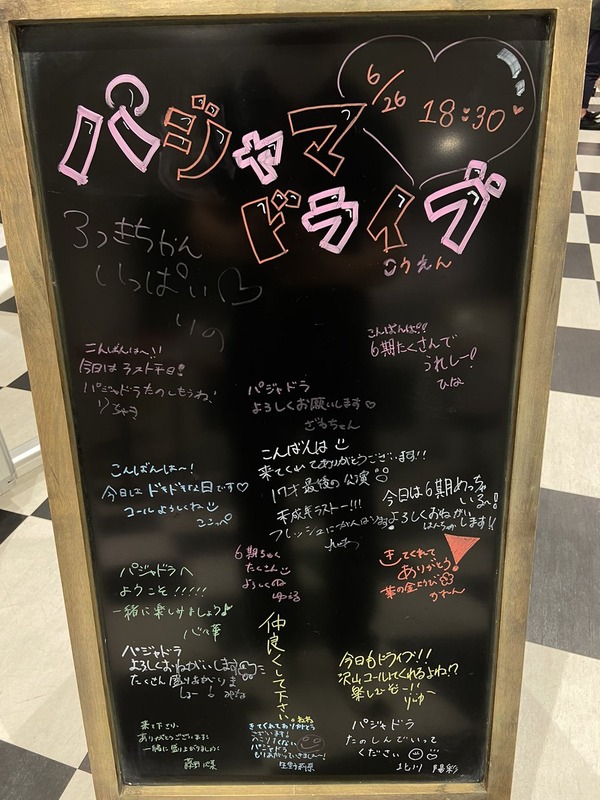 6/26 18:30
パジャマ
ドライブ
こうえん
ろっきちゃん
いっぱい♡
りの
こんばんは〜!!
今日はラスト平日!
パジャドラたのしもうね!
こんばんは!!
6期たくさんで
うれしー!
ひな
パジャドラ
よろしくお願いします♡
ざわちゃん
こんばんは
来てくれてありがとうございます!!
17才最後の公演
未成年ラストー!!!
こんばんは〜!
今日はドキドキな日です♡
コールよろしくね
ここっぺ
今日は6期めっちゃ
いる〜!
よろしくおねがい
します!!
6期ちゃん
たくさん
よろしくね
ゆうる
きてくれて
ありがとう!
華の金ようび
かれん
パジャドラへ
ようこそ!!!!!
一緒に楽しみましょう♪
仲良くして下さい。
パジャドラ
よろしくおねがいします
たくさん盛りあがりま
しょー!
今日もドライブ!!
沢山コールしてくれるよね!?
楽しむぞー!!
りじゅ〜
来て下さり、
ありがとうございます!
一緒に盛り上がりましょう
きてくれてありがとう
ございます!
パジャドラ
もりあがっていきましょー!
生野莉奈
パジャドラ
たのしんでいって
ください
北川 陽彩